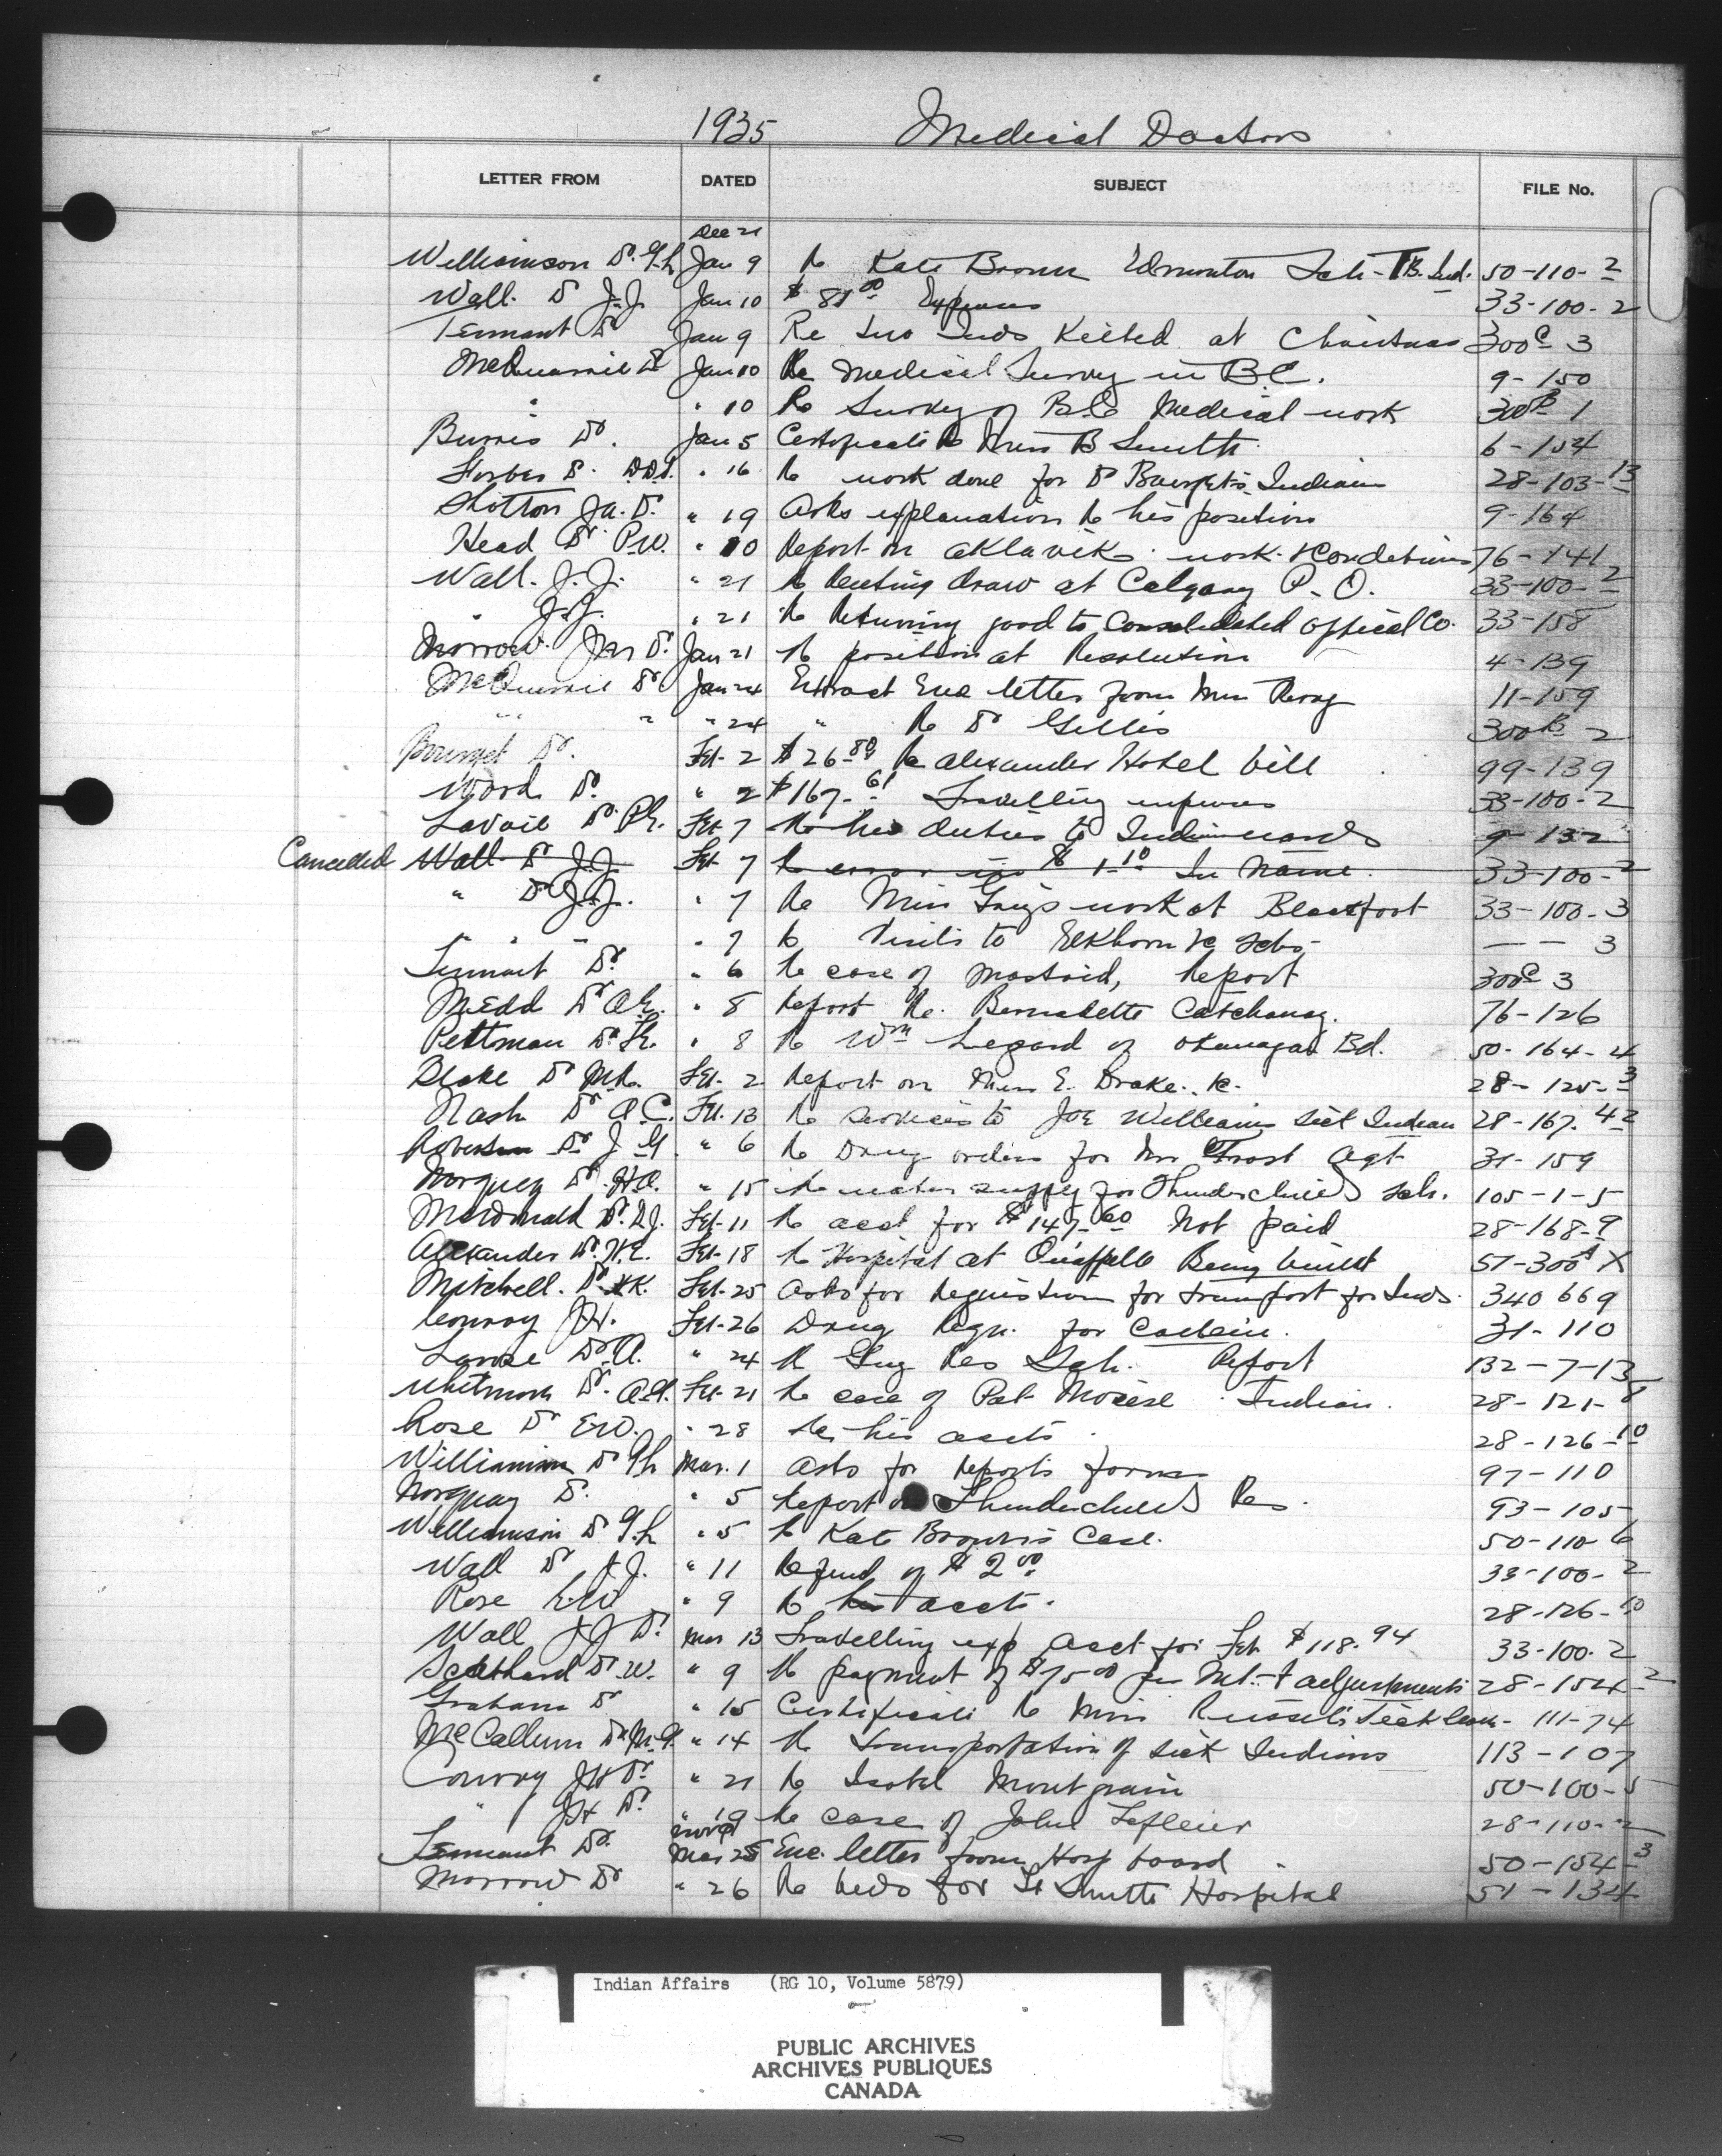 1935 Medical Doctors
LETTER FROM DATED SUBJECT FILE No.
Dec 21
Williamson Dr. G.L. Jan 9 Re Kate Brown Edmonton Sch - TB. Ind. 50-110-2
Wall. Dr J.J. Jan 10 $ 81.00 Expenses 33-100-2
Tennant Dr Jan 9 Re two Inds Killed at Christmas 300C 3
McQuarrie Dr Jan 10 Re Medical Survey in B.C. 9-150
" " 10 Re Survey of B.C. Medical work 300B 1
Burris Dr. Jan 5 Certificate Re Miss B Smith 6-154
Forbes S. D.D.S. " 16 Re work done for Dr Indians 28-103-13
Shotton Ja. Dr. " 19 Asks explanation Re his position 9-164
Head Dr. P.W. " 10 Report on Aklavik work & Conditions 76-141
Wall. J.J. " 21 Re Renting draw at Calgary P.O. 33-100-2
" J.J. " 21 Re Returning good to Consolidated Optical Co. 33-158
Morrow Dr. Jan 21 Re position at Resolution 4-139
McQuarrie Dr Jan 24 Extract Enc letter from Miss 11-159
" " " 24 " Re Dr Gillis 300B 2
Dr. Feb-2 $26.80 Re Alexander Hotel bill 99-139
Wood Dr. " 2 $167.61 Travelling expenses 33-100-2
Lavoie Dr. P.E. Feb 7 Re his duties to Indian wards 9-132
Cancelled Wall Dr J.J. Feb 7 Re error in $ 1.10 In name. 33-100-2
" Dr J.J. " 7 Re Miss work at Blackfoot 33-100-3
" " " " 7 Re Visits to Elkhorn &c Schs - — — 3
Tennant Dr. " 6 Re case of mastoid, Report 300C 3
Medd Dr A.E. " 8 Report Re. Bernadette 76-126
Pettman Dr. " 8 Re Wm Legard of Okanagan Bd. 50-164-4
Blake Dr M.R. Feb-2 Report on Miss E. Drake. &c. 28-125-3
Nash Dr A.C. Feb. 13 Re services to Joe Williams sick Indian 28-167-42
Robertson Dr J G " 6 Re Drug orders for Mr Frost Agt 31-159
Norquay Dr. H.C. " 15 Re water supply for Thunderchild Sch. 105-1-5
MacDonald Dr. D.J. Feb-11 Re acct for $147.60 Not paid 28-168-9
Alexander Dr. W.E. Feb-18 Re Hospital at Qu'appelle Being built 51-300A X
Mitchell. Dr. K. Feb-25 Asks for Requisition for transport for Inds. 340669
Conroy J.H. Feb-26 Drug Reqn. for Codein. 31-110
Dr. A. " 24 Re Res Sch. Report 132-7-13
Whitmore Dr. A.E. Feb-21 Re case of Pat Indian. 28-121-8
Rose Dr E.W. " 28 Re his accts. 28-126-10
Williamson Dr G.L. Mar. 1 Asks for Reports forms 97-110
Norquay Dr. " 5 Report on Thunderchild Res. 93-105
Williamson Dr G.L. " 5 Re Kate Brown's Case. 50-110-6
Wall Dr J.J. " 11 Refund of $2.00 33-100-2
Rose E.W. " 9 Re his accts. 28-126-10
Wall J J Dr. Mar 13 Travelling exp Acct for Feb $118.94 33-100-2
Dr. W. " 9 Re payment of $75.00 per Mt. & adjustments 28-154-2
Graham Dr " 15 Certificate Re Miss Russell's Sick leave - 111-74
McCallum Dr M.G. " 14 Re Transportation of sick Indians 113-107
Conroy J.H. Dr. " 21 Re Isabel Mountgrain 50-100-5
" J.H. Dr. " 19 Re case of John Lafleur 28-110-2
Nov 9
Tennant Dr. Mar 25 Enc. letter from Hosp board. 50-154-3
Morrow Dr " 26 Re beds for Ft Smith Hospital 51-134
Indian Affairs (RG 10, Volume 5879)
PUBLIC ARCHIVES
ARCHIVES PUBLIQUES
CANADA